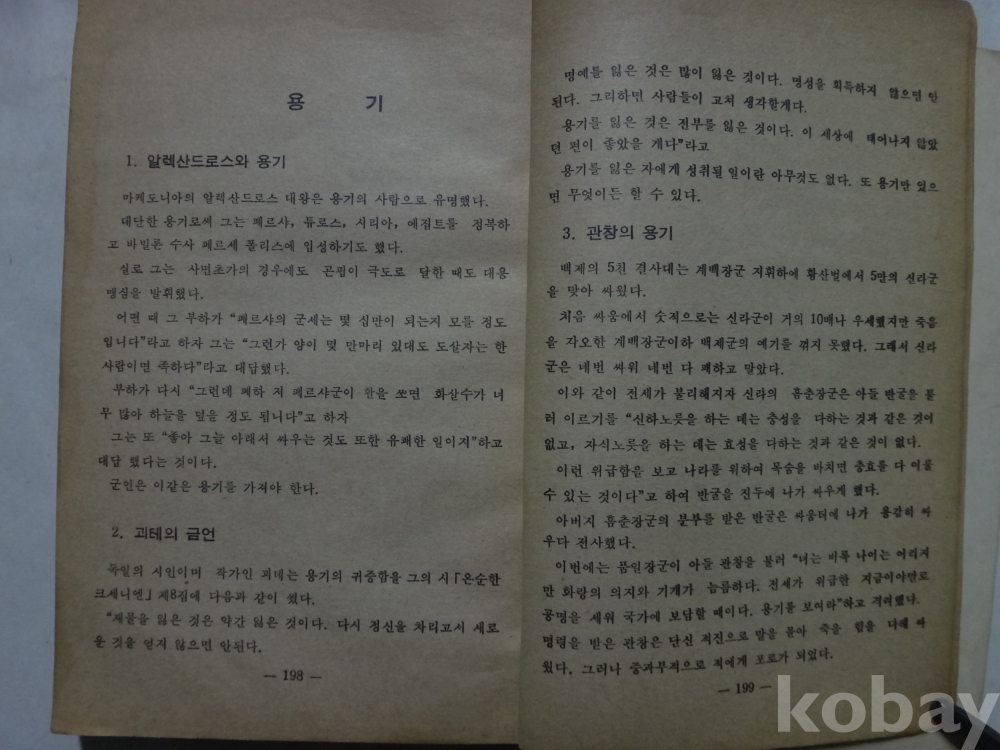 용 기
1. 알렉산드로스와 용기
마케도니아의 알렉산드로스 대왕은 용기의 사람으로 유명했다.
대단한 용기로써 그는 페르샤, 튜로스, 시리아, 에집트를 정복하
고 바빌론 수사 페르세 폴리스에 입성하기도 했다.
실로 그는 사면초가의 경우에도 곤핍이 극도로 달한 때도 대용
맹심을 발휘했다.
어떤 때 그 부하가 “페르샤의 군세는 몇 십만이 되는지 모를 정도
입니다”라고 하자 그는 “그런가 양이 몇 만마리 있대도 도살자는 한
사람이면 족하다”라고 대답했다.
부하가 다시 “그런데 폐하 저 페르샤군이 활을 쏘면 화살수가 너
무 많아 하늘을 덮을 정도 됩니다”고 하자
그는 또 “좋아 그늘 아래서 싸우는 것도 또한 유쾌한 일이지”하고
대답 했다는 것이다.
군인은 이같은 용기를 가져야 한다.
2. 괴테의 금언
독일의 시인이며 작가인 괴테는 용기의 귀중함을 그의 시 「온순한
크세니엔」 제8집에 다음과 같이 썼다.
“재물을 잃은 것은 약간 잃은 것이다. 다시 정신을 차리고서 새로
운 것을 얻지 않으면 안된다.
— 198 —
명예를 잃은 것은 많이 잃은 것이다. 명성을 획득하지 않으면 안
된다. 그리하면 사람들이 고쳐 생각할게다.
용기를 잃은 것은 전부를 잃은 것이다. 이 세상에 태어나지 않았
던 편이 좋았을 게다”라고
용기를 잃은 자에게 성취될 일이란 아무것도 없다. 또 용기만 있으
면 무엇이든 할 수 있다.
3. 관창의 용기
백제의 5천 결사대는 계백장군 지휘하에 황산벌에서 5만의 신라군
을 맞아 싸웠다.
처음 싸움에서 숫적으로는 신라군이 거의 10배나 우세했지만 죽음
을 각오한 계백장군이하 백제군의 예기를 꺾지 못했다. 그래서 신라
군은 네번 싸워 네번 다 패하고 말았다.
이와 같이 전세가 불리해지자 신라의 흠춘장군은 아들 반굴을 불
러 이르기를 “신하노릇을 하는 데는 충성을 다하는 것과 같은 것이
없고, 자식노릇을 하는 데는 효성을 다하는 것과 같은 것이 없다.
이런 위급함을 보고 나라를 위하여 목숨을 바치면 충효를 다 이룰
수 있는 것이다”고 하여 반굴을 진두에 나가 싸우게 했다.
아버지 흠춘장군의 분부를 받은 반굴은 싸움터에 나가 용감히 싸
우다 전사했다.
이번에는 품일장군이 아들 관창을 불러 “너는 비록 나이는 어리지
만 화랑의 의지와 기개가 늠름하다. 전세가 위급한 지금이야말로
공명을 세워 국가에 보답할 때이다. 용기를 보여라”하고 격려했다.
명령을 받은 관창은 단신 적진으로 말을 몰아 죽을 힘을 다해 싸
웠다. 그러나 중과부적으로 적에게 포로가 되었다.
— 199 —
kobay